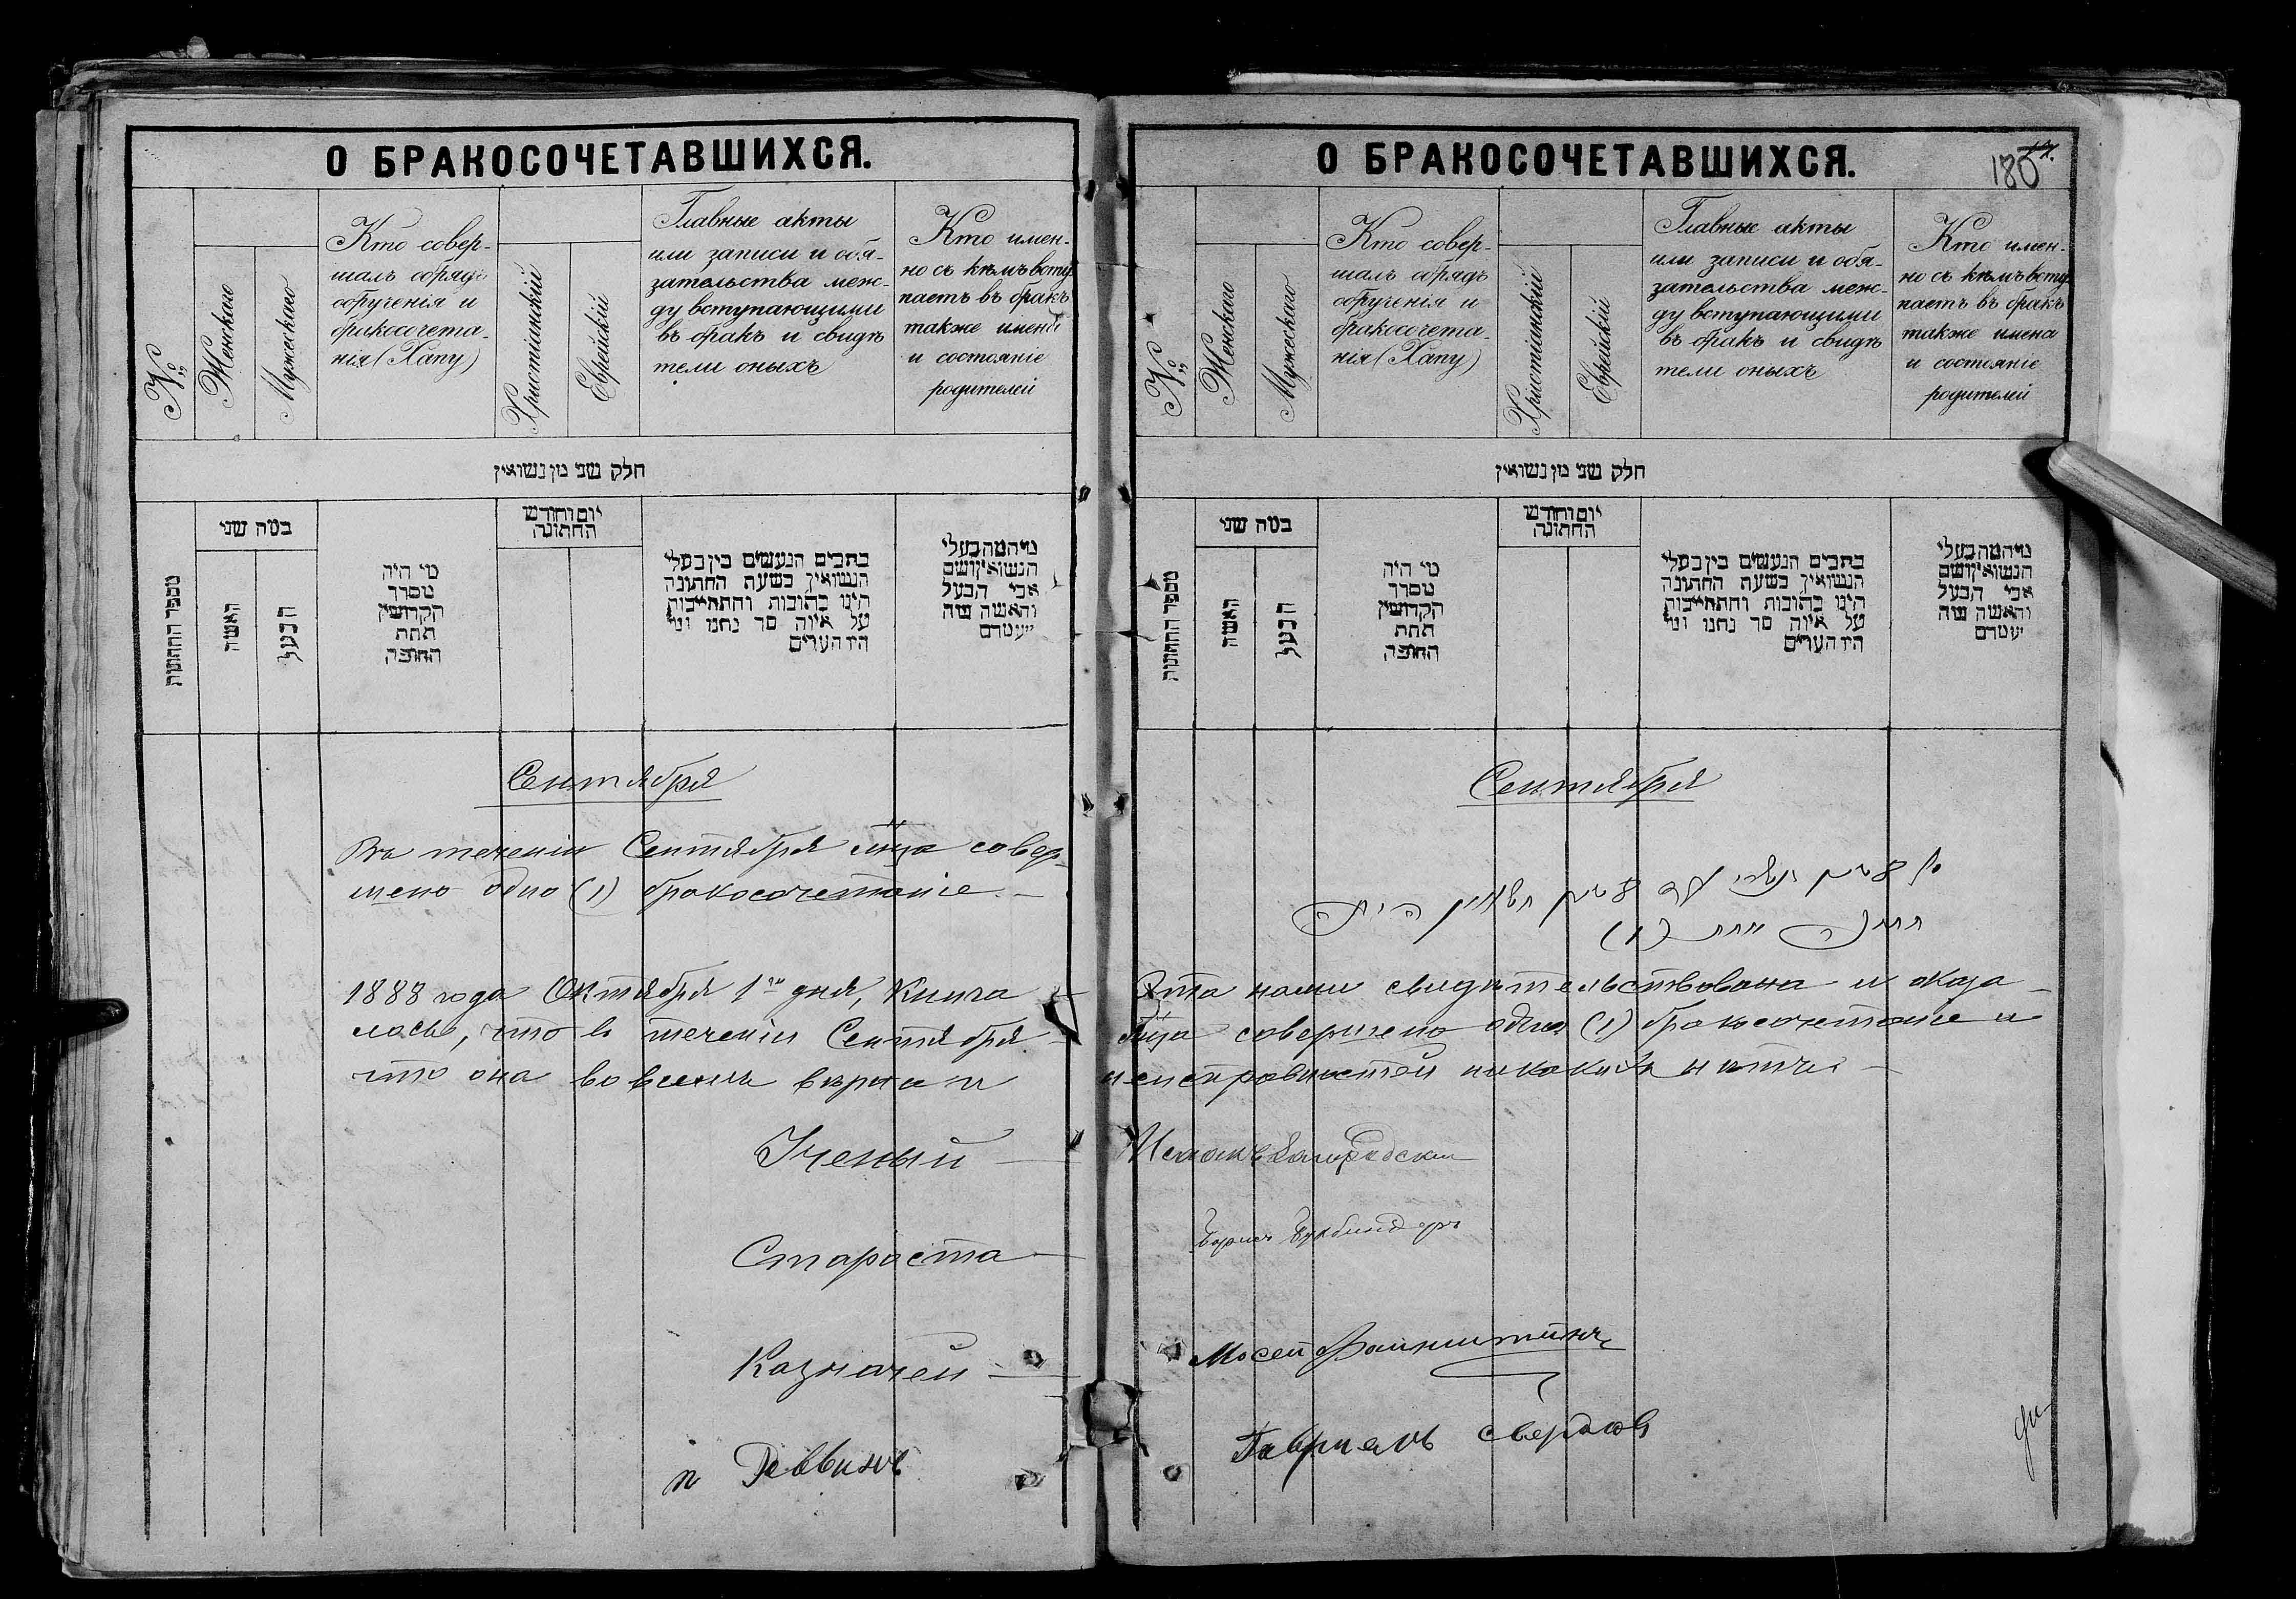 О БРАКОСОЧЕТАВШИХСЯ.
№
Женскаго
Мужескаго
Кто совер-
шалъ обрядъ
обрученія и
бракосочета-
нія (Хапу)
Христіанскій
Еврейскій
Главные акты
или записи и обя-
зательства меж-
ду вступающими
въ бракъ и свидѣ
тели оныхъ
Кто имен-
но съ кѣмъ всту
паетъ въ бракъ
также имена
и состояніе
родителей
חלק שני מן נשואין
מספר החתונות
במה שני
האשה
הבעל
מי היה
מסדר
הקדושין
תחת
החופה
יום וחודש
החתונה
כתבים הנעשים בין בעלי
הנשואין בשעת החתונה
היינו כתובות והתחייבות
על איזה סך נתנו ומי
היו העדים
מי המה בעלי
הנשואין ושם
אבי הבעל
והאשה ומה
מעמדם
Сентября
Въ теченіи Сентября м-ца совер-
шено одно (1) бракосочетаніе. —
1888 года Октября 1го дня, Книга
лось, что въ теченіи Сентября
что она во всемъ вѣрна и
Ученый —
Староста —
Казначей —
п Раввинъ
О БРАКОСОЧЕТАВШИХСЯ.
180
№
Женскаго
Мужескаго
Кто совер-
шалъ обрядъ
обрученія и
бракосочета-
нія (Хапу)
Христіанскій
Еврейскій
Главные акты
или записи и обя-
зательства меж-
ду вступающими
въ бракъ и свидѣ
тели оныхъ
Кто имен-
но съ кѣмъ всту
паетъ въ бракъ
также имена
и состояніе
родителей
חלק שני מן נשואין
מספר החתונות
במה שני
האשה
הבעל
מי היה
מסדר
הקדושין
תחת
החופה
יום וחודש
החתונה
כתבים הנעשים בין בעלי
הנשואין בשעת החתונה
היינו כתובות והתחייבות
על איזה סך נתנו ומי
היו העדים
מי המה בעלי
הנשואין ושם
אבי הבעל
והאשה ומה
מעמדם
Сентября
(1)
Эта нами свидѣтельствована и оказа-
м-ца совершено одно (1) бракосочетаніе и
неисправностей никакихъ нѣтъ —
Борисъ Букбиндеръ
Мосей Файнштейнъ
Гавріелъ Свердловъ